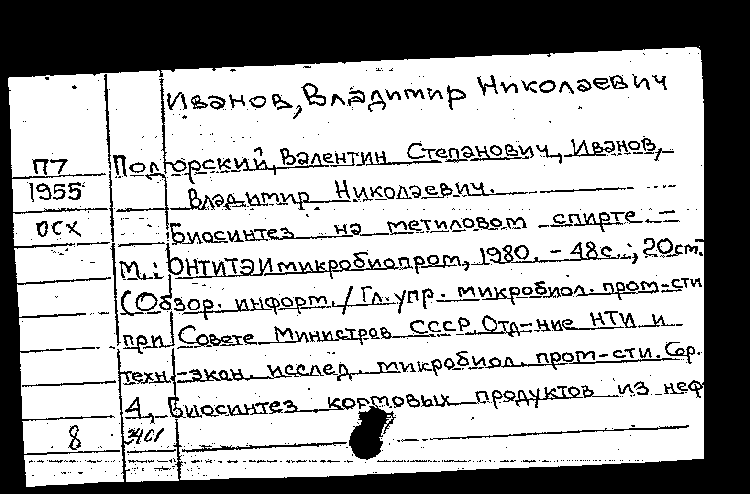 Иванов, Владимир Николаевич
П7 Подгорский, Валентин Степанович, Иванов,
1955 Владимир Николаевич.
ОСХ Биосинтез на метиловом спирте. –
М.: ОНТИТЭИмикробиопром, 1980. – 48с.; 20см.
(Обзор. информ. / Гл. упр. микробиол. пром-сти
при Совете Министров СССР. Отд-ние НТИ и
техн.-экон. исслед. микробиол. пром-сти. Сер.
4, Биосинтез кормовых продуктов из неф
8